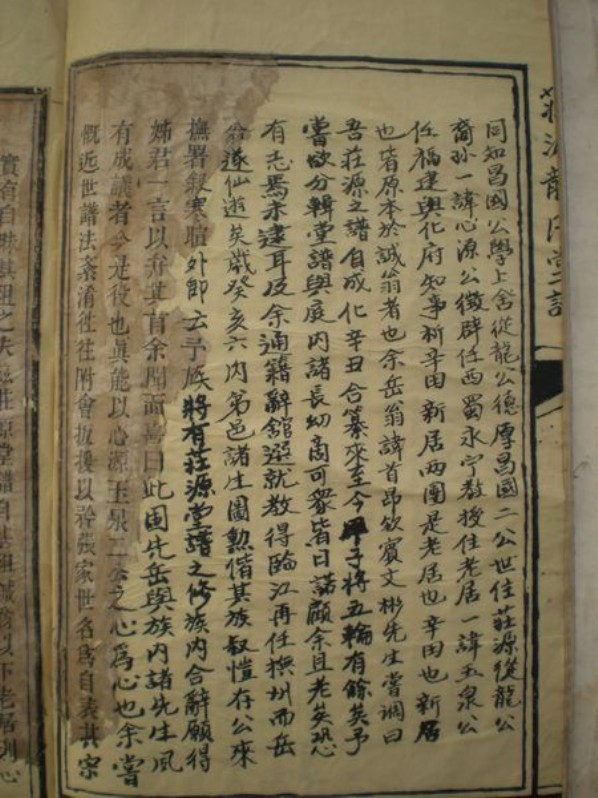 莊源龍氏堂譜
同知昌國公學上舍從龍公德厚昌國二公世住莊源從龍公
裔孫一諱心源公徵辟任西蜀永宁教授住老居一諱玉泉公
任福建興化府知事析辛田新居兩團是老居也辛田也新居
也皆原本於誠翁者也余岳翁諱首昂欽賓文彬先生嘗謂曰
吾莊源之譜自成化辛丑合纂來至今甲子將五輪有餘矣予
嘗欲分輯堂譜與庭内諸長幼商可衆皆曰諾顧余且老矣恐
有志焉未逮耳及余通籍辭舘選就教得臨江再任撫州而岳
翁遂仙遊矣歲癸亥六内弟邑諸生圖勲偕其族叔愷存公來
撫署叙寒暄外即云予族將有莊源堂譜之修族内合辭願得
姊君一言以弁其首余聞而喜曰此固先岳與族内諸先生夙
有成議者今是役也眞能以心源玉泉二公之心爲心也余嘗
慨近世譜法紊淆徃徃附會扳援以矜張家世名爲自表其宗
實有自昧其祖之失兹莊原堂譜自基祖誠翁以下老居列心